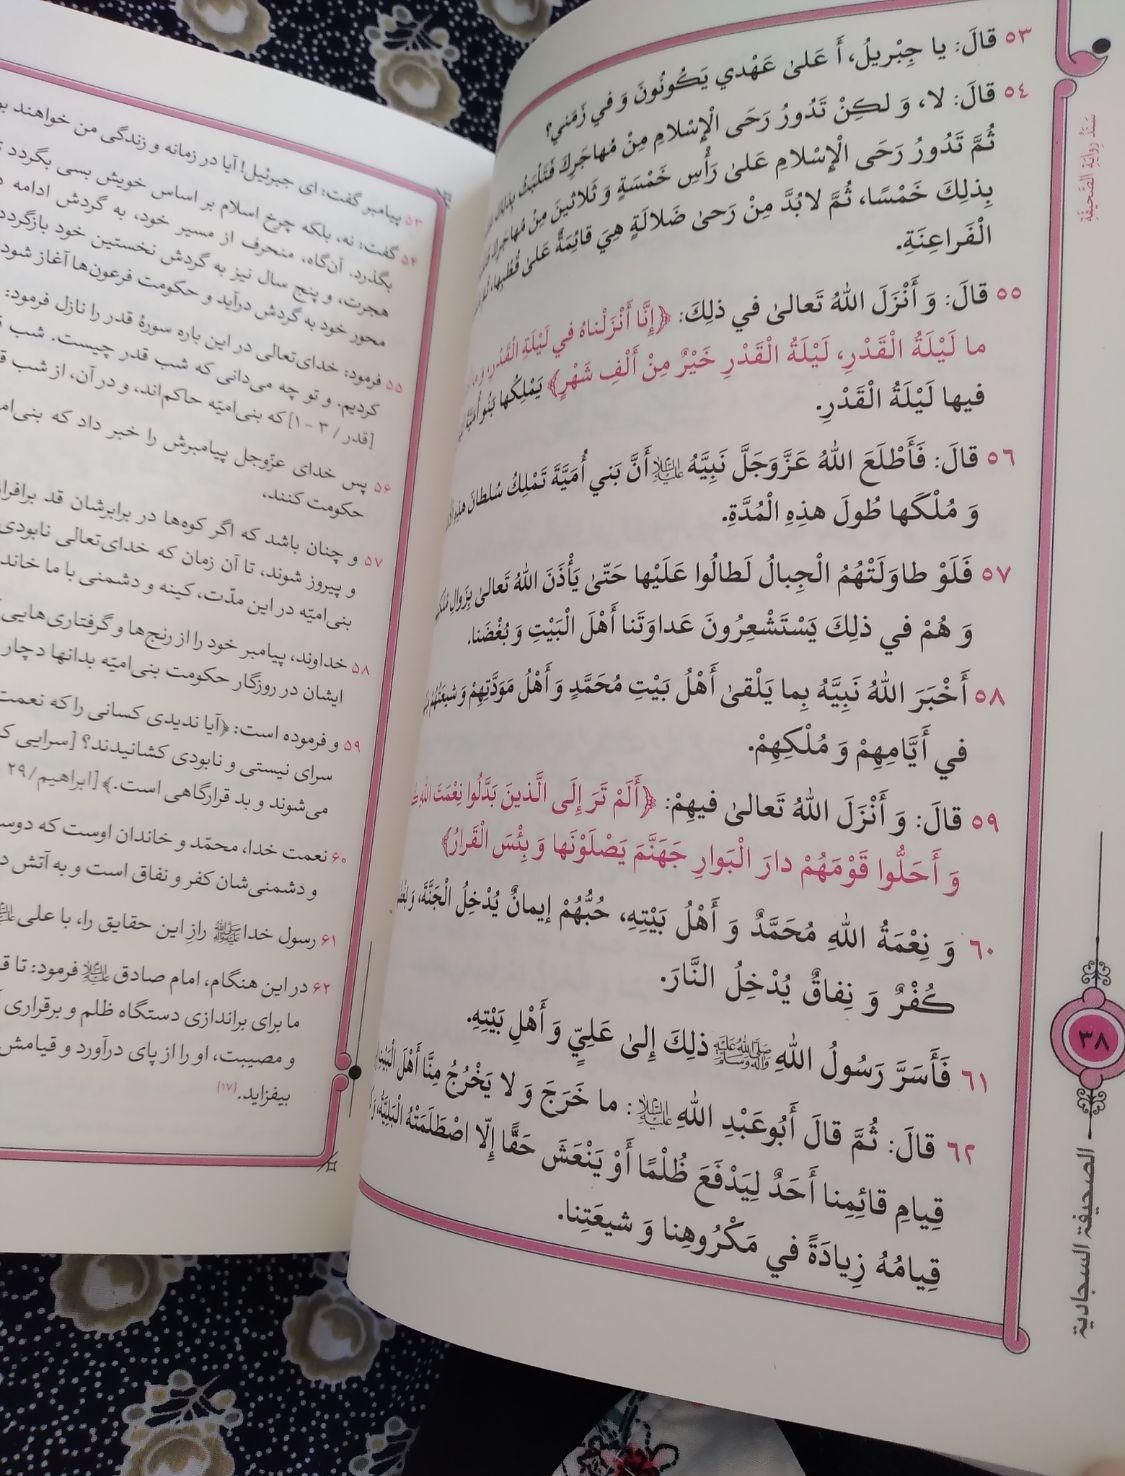 ٥٣ قالَ: يا جِبْريلُ، أَ عَلىٰ عَهْدي يَكُونُونَ وَ في زَمَني؟
٥٤ قالَ: لا، وَ لكِنْ تَدُورُ رَحَى الْإِسْلامِ مِنْ مُهاجَرِكَ فَتَلْبَثُ بِذلِكَ
ثُمَّ تَدُورُ رَحَى الْإِسْلامِ عَلىٰ رَأْسِ خَمْسَةٍ وَ ثَلاثينَ مِنْ مُهاجَرِكَ
بِذلِكَ خَمْسًا، ثُمَّ لابُدَّ مِنْ رَحىٰ ضَلالَةٍ هِيَ قائِمَةٌ عَلىٰ قُطْبِها،
الْفَراعِنَةِ.
٥٥ قالَ: وَ أَنْزَلَ اللهُ تَعالىٰ في ذلِكَ: ﴿إِنَّا أَنْزَلْناهُ في لَيْلَةِ الْقَدْرِ،
ما لَيْلَةُ الْقَدْرِ، لَيْلَةُ الْقَدْرِ خَيْرٌ مِنْ أَلْفِ شَهْرٍ﴾ يَمْلِكُها بَنُو أُمَيَّةَ
فيها لَيْلَةُ الْقَدْرِ.
٥٦ قالَ: فَأَطْلَعَ اللهُ عَزَّوَجَلَّ نَبِيَّهُ عليه السلام أَنَّ بَني أُمَيَّةَ تَمْلِكُ سُلْطانَ هذِهِ
وَ مُلْكَها طُولَ هذِهِ الْمُدَّةِ.
٥٧ فَلَوْ طاوَلَتْهُمُ الْجِبالُ لَطالُوا عَلَيْها حَتّىٰ يَأْذَنَ اللهُ تَعالىٰ بِزَوالِ
وَ هُمْ في ذلِكَ يَسْتَشْعِرُونَ عَداوَتَنا أَهْلَ الْبَيْتِ وَ بُغْضَنا.
٥٨ أَخْبَرَ اللهُ نَبِيَّهُ بِما يَلْقىٰ أَهْلُ بَيْتِ مُحَمَّدٍ وَ أَهْلُ مَوَدَّتِهِمْ وَ شيعَتُهُمْ
في أَيَّامِهِمْ وَ مُلْكِهِمْ.
٥٩ قالَ: وَ أَنْزَلَ اللهُ تَعالىٰ فيهِمْ: ﴿أَلَمْ تَرَ إِلَى الَّذينَ بَدَّلُوا نِعْمَتَ اللهِ
وَ أَحَلُّوا قَوْمَهُمْ دارَ الْبَوارِ جَهَنَّمَ يَصْلَوْنَها وَ بِئْسَ الْقَرارُ﴾
٦٠ وَ نِعْمَةُ اللهِ مُحَمَّدٌ وَ أَهْلُ بَيْتِهِ، حُبُّهُمْ إيمانٌ يُدْخِلُ الْجَنَّةَ،
كُفْرٌ وَ نِفاقٌ يُدْخِلُ النَّارَ.
٦١ فَأَسَرَّ رَسُولُ اللهِ ﷺ ذلِكَ إِلىٰ عَلِيٍّ وَ أَهْلِ بَيْتِهِ.
٦٢ قالَ: ثُمَّ قالَ أَبُوعَبْدِ اللهِ عليه السلام: ما خَرَجَ وَ لا يَخْرُجُ مِنَّا أَهْلَ الْبَيْتِ
قِيامِ قائِمِنا أَحَدٌ لِيَدْفَعَ ظُلْمًا أَوْ يَنْعَشَ حَقًّا إِلّا اصْطَلَمَتْهُ الْبَلِيَّةُ،
قِيامُهُ زِيادَةً في مَكْرُوهِنا وَ شيعَتِنا.
سَنَدُ رِوايَةِ الصَّحيفَةِ
٣٨
الصحيفة السجادية
۵۳ پیامبر گفت: ای جبرئیل! آیا در زمانه و زندگی من خواهند
۵۴ گفت: نه، بلکه چرخ اسلام بر اساس خویش بسی بگردد
بگذرد. آن‌گاه، منحرف از مسیر خود، به گردش ادامه
هجرت، و پنج سال نیز به گردش نخستین خود بازگردد
محور خود به گردش درآید و حکومت فرعون‌ها آغاز شود
۵۵ فرمود: خدای‌تعالی در این باره سورهٔ قدر را نازل فرمود:
کردیم. و تو چه می‌دانی که شب قدر چیست. شب
[قدر / ۳ - ۱] که بنی‌امیّه حاکم‌اند، و در آن، از شب
۵۶ پس خدای عزّوجل پیامبرش را خبر داد که
حکومت کنند،
۵۷ و چنان باشد که اگر کوه‌ها در برابرشان قد
و پیروز شوند، تا آن زمان که خدای‌تعالی نابودی
بنی‌امیّه در این مدّت، کینه و دشمنی با ما
۵۸ خداوند، پیامبر خود را از رنج‌ها و گرفتاری‌هایی
ایشان در روزگار حکومت بنی‌امیّه بدانها دچار
۵۹ و فرموده است: ﴿آیا ندیدی کسانی را که نعمت
سرای نیستی و نابودی کشانیدند؟ [سرایی
می‌شوند و بد قرارگاهی است.﴾ [ابراهیم/ ۲۹
۶۰ نعمت خدا، محمّد و خاندان اوست که
و دشمنی‌شان کفر و نفاق است و به آتش
۶۱ رسول خدا ﷺ رازِ این حقایق را، با علی
۶۲ در این هنگام، امام صادق عليه السلام فرمود: تا
ما برای براندازی دستگاه ظلم و برقراری
و مصیبت، او را از پای درآورد و قیامش
بیفزاید.(۱۷)